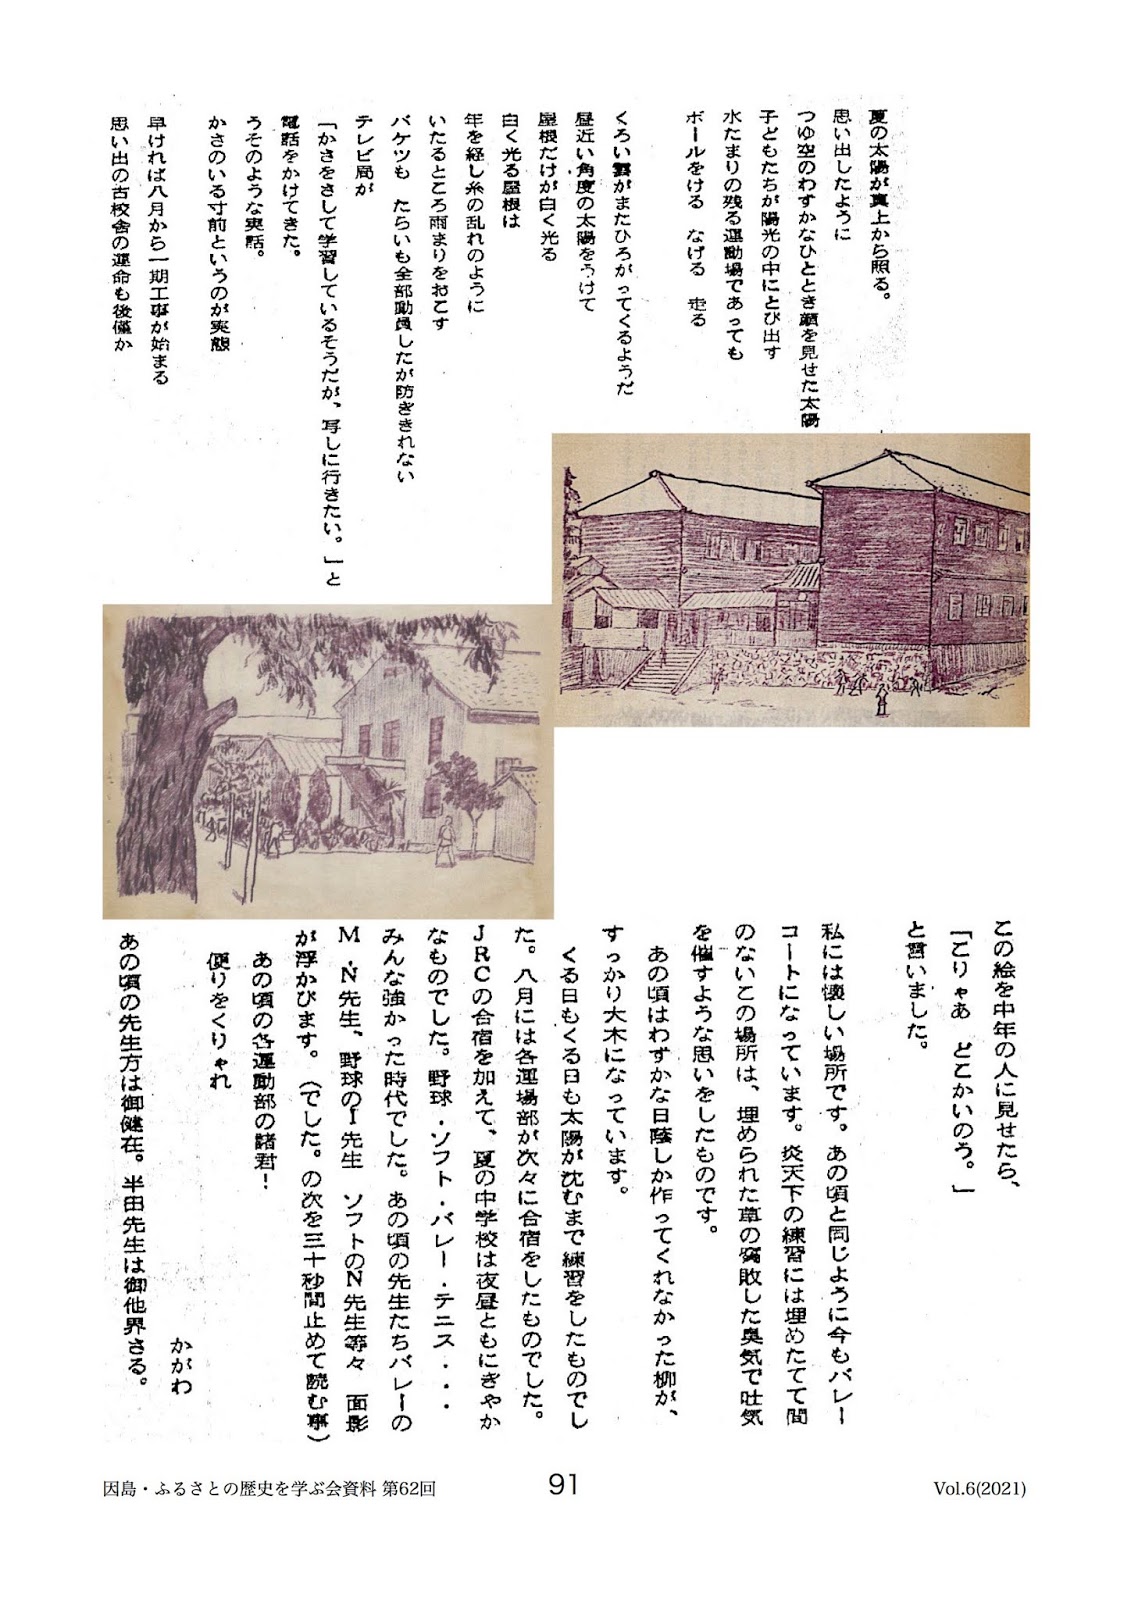 夏の太陽が真上から照る。
思い出したように
つゆ空のわずかなひととき顔を見せた太陽
子どもたちが陽光の中にとび出す
水たまりの残る運動場であっても
ボールをける なげる 走る
くろい雲がまたひろがってくるようだ
昼近い角度の太陽をうけて
屋根だけが白く光る
白く光る屋根は
年を経し糸の乱れのように
いたるところ雨まりをおこす
バケツも たらいも全部動員したが防ぎきれない
テレビ局が
「かさをさして学習しているそうだが、写しに行きたい。」と
電話をかけてきた。
うそのような実話。
かさのいる寸前というのが実態
早ければ八月から一期工事が始まる
思い出の古校舎の運命も後僅か
この絵を中年の人に見せたら、
「こりゃあ どこかいのう。」
と言いました。
私には懐しい場所です。あの頃と同じように今もバレー
コートになっています。炎天下の練習には埋めたてて間
のないこの場所は、埋められた草の腐敗した臭気で吐気
を催すような思いをしたものです。
あの頃はわずかな日蔭しか作ってくれなかった柳が、
すっかり大木になっています。
くる日もくる日も太陽が沈むまで練習をしたものでし
た。八月には各運場部が次々に合宿をしたものでした。
JRCの合宿を加えて、夏の中学校は夜昼ともにぎやか
なものでした。野球・ソフト・バレー・テニス・・・・
みんな強かった時代でした。あの頃の先生たちバレーの
M・N先生、野球のI先生 ソフトのN先生等々 面影
が浮かびます。（でした。の次を三十秒間止めて読む事）
あの頃の各運動部の諸君！
便りをくりゃれ
かがわ
あの頃の先生方は御健在。半田先生は御他界さる。
因島・ふるさとの歴史を学ぶ会資料 第62回
91
Vol.6(2021)